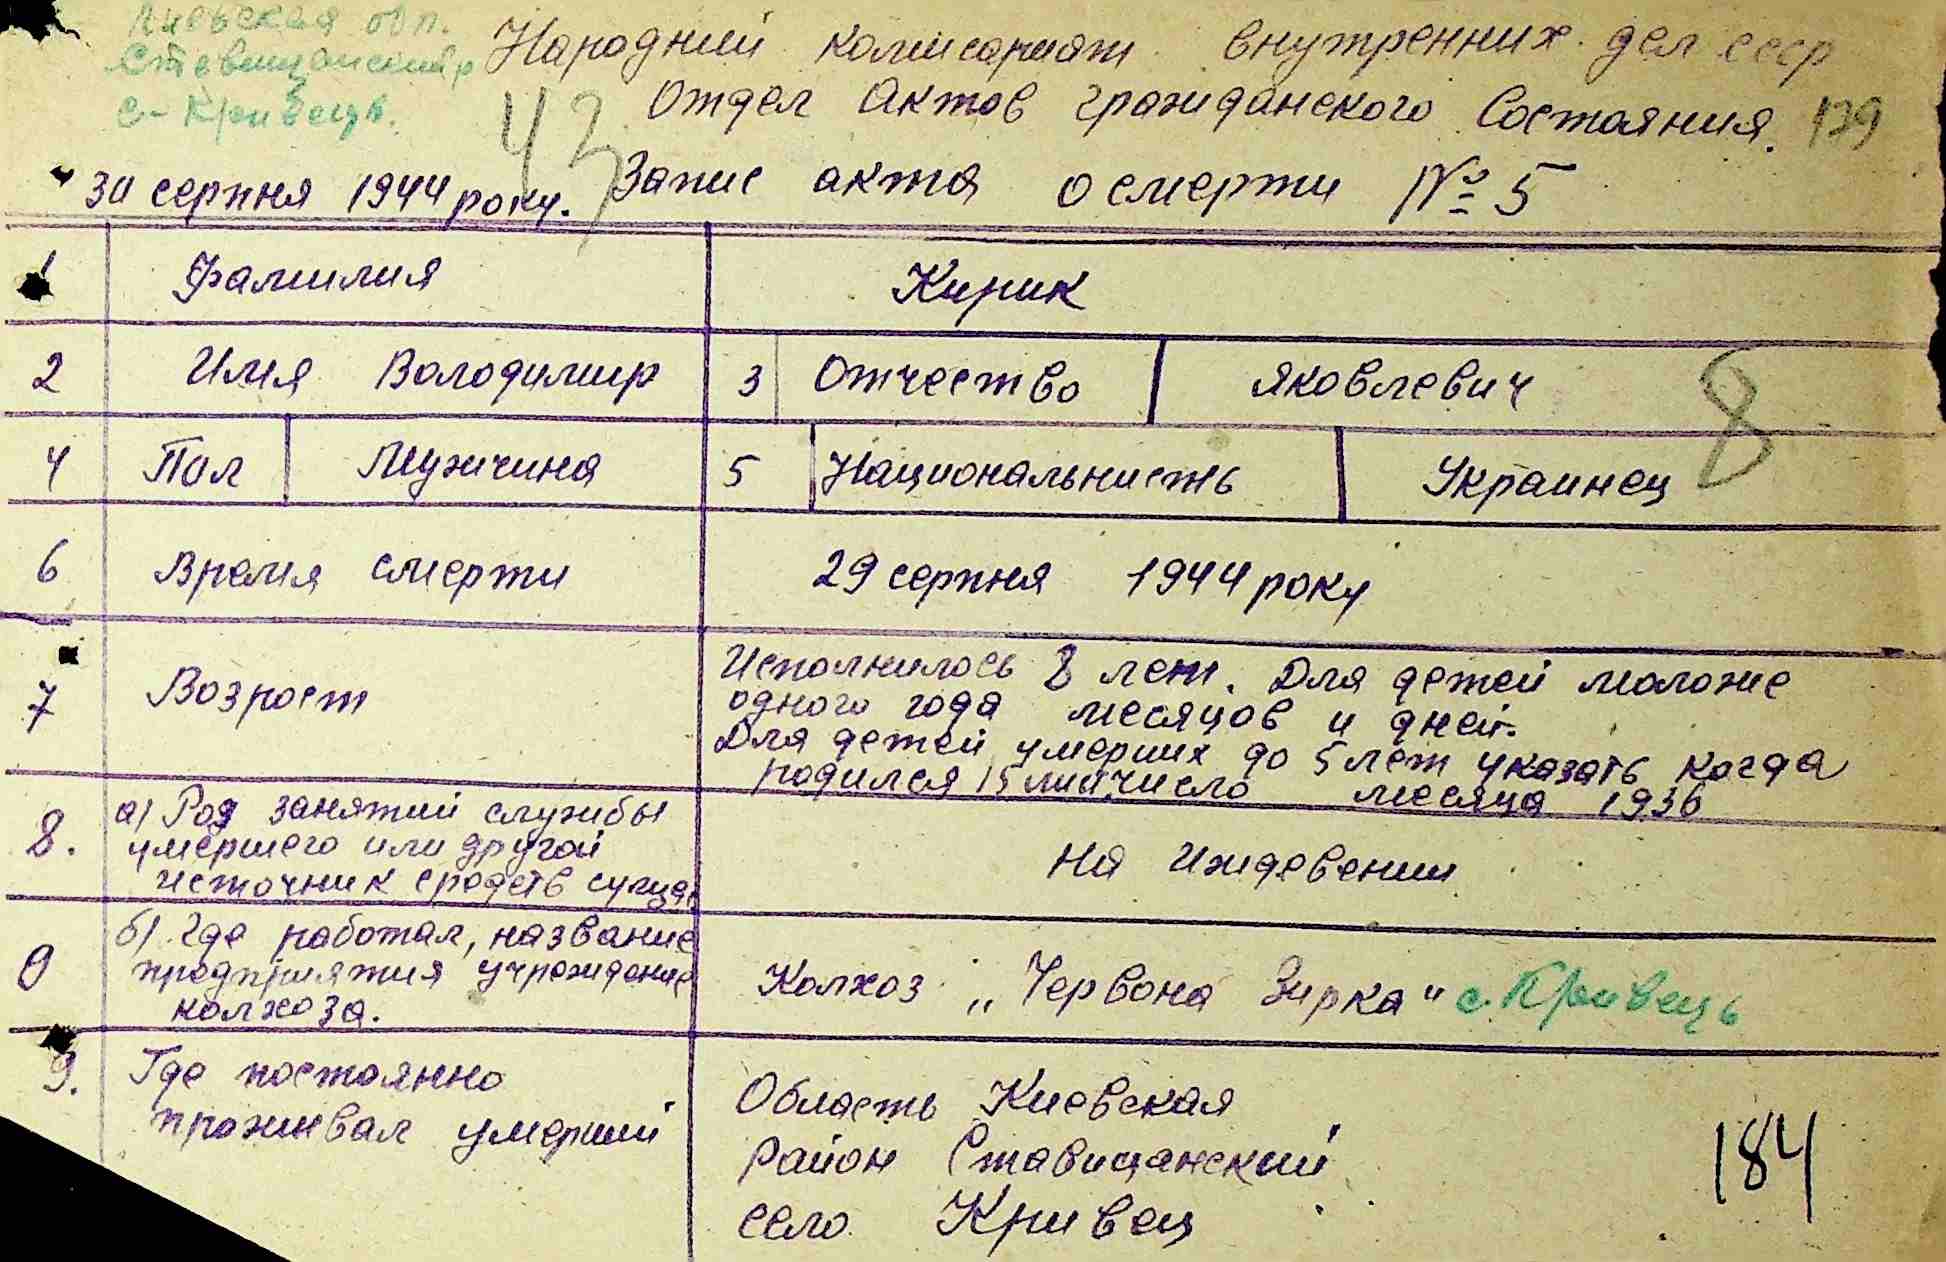 Киевская обл.
Ставищанский р
с- Кривець.
Народний комисариат внутренних дел ссср
Отдел Актов гражданского Состояния. 139
43
30 серпня 1944 року. Запис акта о смерти № 5
1 Фамилия Кирик
2 Имя Володимир 3 Отчество Яковлевич
8
4 Пол Мужчина 5 Национальнисть Украинец
6 Время смерти 29 серпня 1944 року
7 Возраст Исполнилось 8 лет. Для детей моложе
одного года месяцов и дней.
Для детей умерших до 5 лет указать когда
родился 15 число месяца 1936
8. а) Род занятий службы
умершего или другой
источник средств
На Иждевении
б) Где работал, название
предприятия учреждение
колхоза.
Колхоз „Червона Зирка" с. Кривець
9. Где постоянно
проживал умерший
Область Киевская
район Ставищанский
село Кривец
184